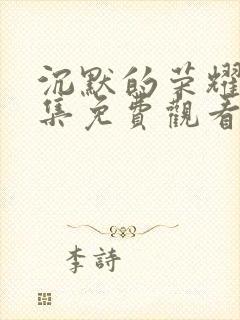 沉默的荣耀
集免費觀看
李詩